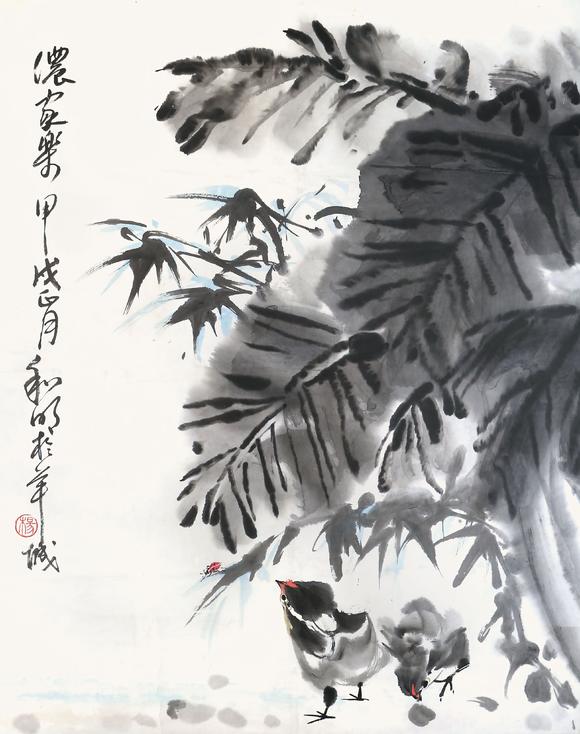 濃家樂 甲戌正月 和明於羊城
楊